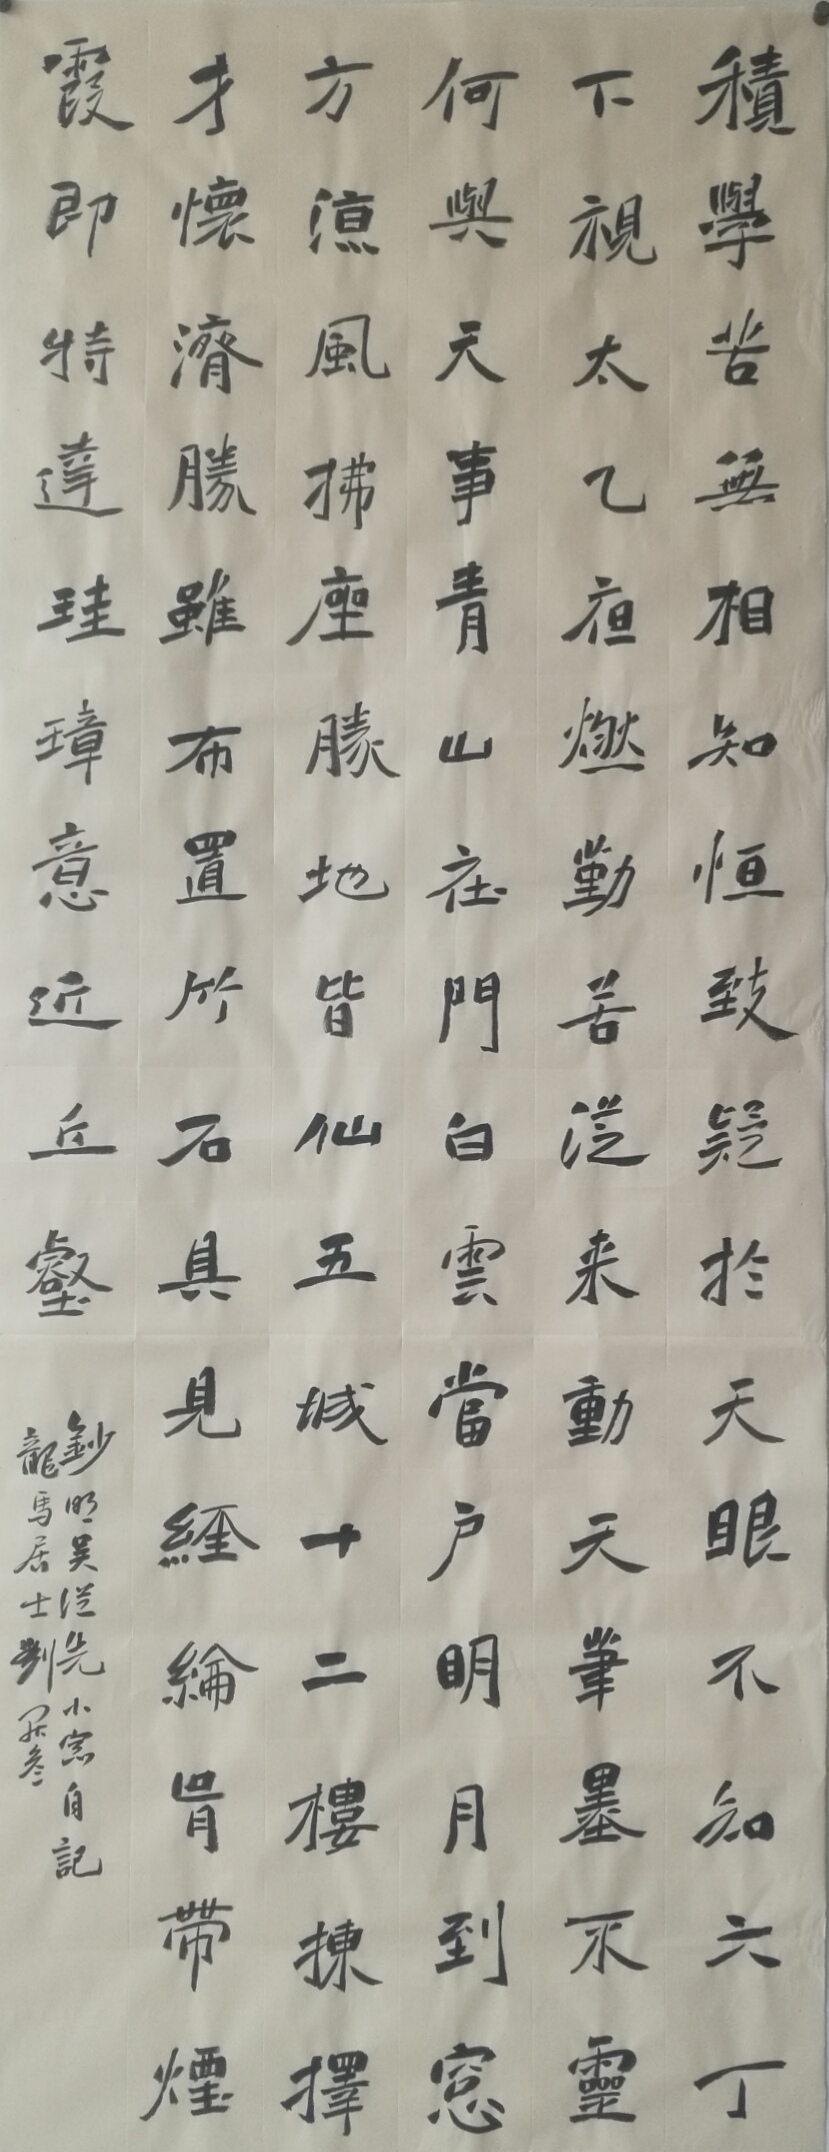 積學苦無相知恒致疑於天眼不知六丁
下視太乙夜燃勤苦從来動天筆墨不靈
何與天事青山在門白雲當戶明月到窓
方涼風拂座勝地皆仙五城十二樓揀擇
才懷濟勝雖布置竹石具見經綸胷帶煙
霞即特達珪璋意近丘壑
鈔明吴從先小窓自記
龍馬居士劉